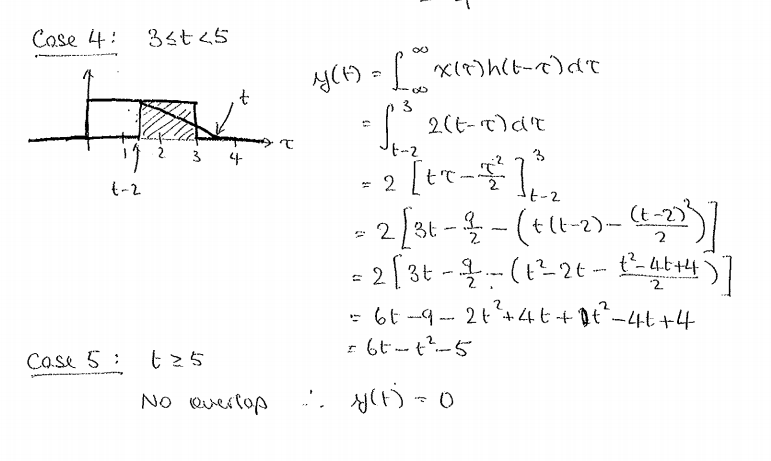 Case 4: 3≤t<5
y(t) = ∫_{-∞}^{∞} x(τ)h(t-τ)dτ
= ∫_{t-2}^{3} 2(t-τ)dτ
= 2 [tτ - τ²/2]_{t-2}^{3}
= 2 [3t - 9/2 - (t(t-2) - (t-2)²/2)]
= 2 [3t - 9/2 - (t² - 2t - (t²-4t+4)/2)]
= 6t - 9 - 2t² + 4t + t² - 4t + 4
= 6t - t² - 5
t
1 2 3 4 τ
t-2
Case 5: t≥5
No overlap ∴ y(t) = 0